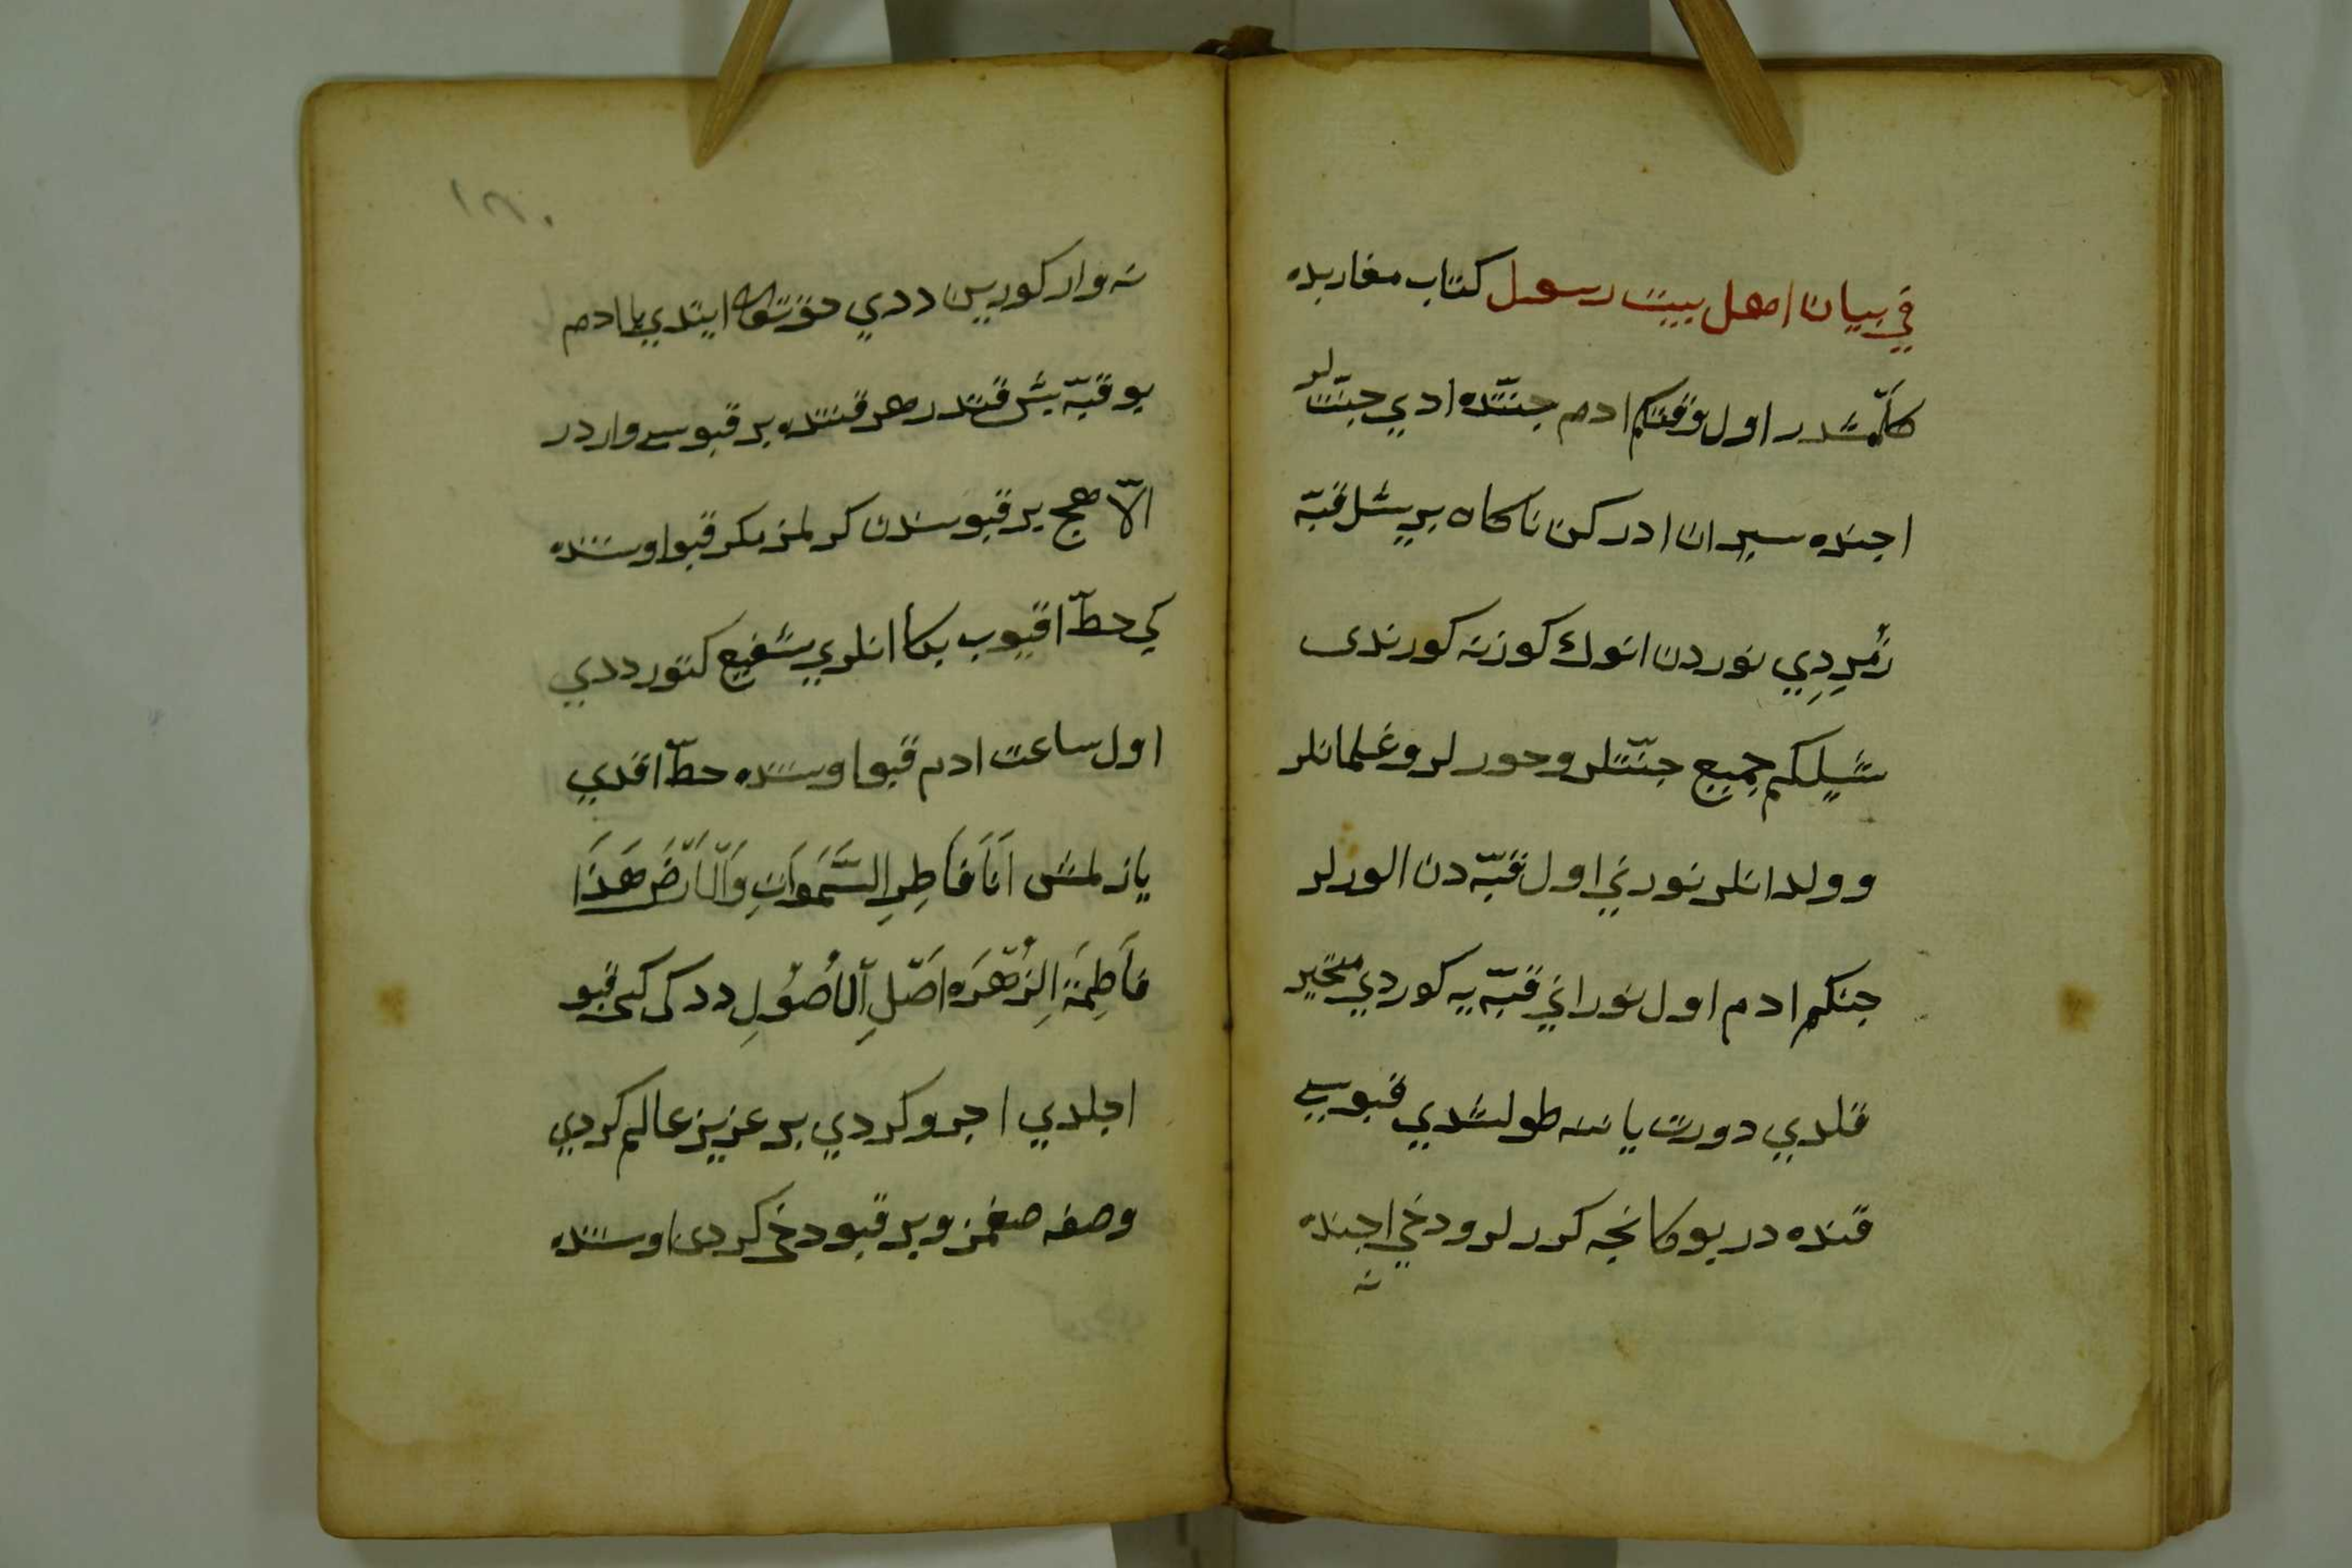 في بيان اهل بيت رسول كتاب مغاربده
كلمشدر اول وقتكم ادم جنتده ادي جنتلر
اجنده سيران ادركن ناكاه بر يشل قبّه
زُمردِي نوردن انوك كوزنه كورندى
شيلكم جميع جنّتلر وحورلر وغلمانلر
وولدانلر نورني اول قبّه دن الورلر
جنكم ادم اول نوراني قبّه يه كوردي متحير
قلدي دورت يانه طولشدي قبوسي
قنده در بوكا نجه كررلر ودخي اجنده
نه
١٨٠
نه وار كوريين ددي حق تعالى ايتدي يا ادم
بو قبّه بش قتدر هر قتنده بر قبوسي واردر
الّا هيج بر قبوسندن كرلمز مكر قبو اوستنده
كي خطّ اقيوب بكا انلري شفيع كتور ددي
اول ساعت ادم قبو اوستنده خطّ اقدي
يازلمش اَنَا فَاطِرِ السَّمَوَاتِ وَالْاَرْضِ هَذَا
فَاطِمَة اِلزُّهْرَه اَصْلِ الْاُصُولِ ددكى كبى قبو
اجلدي اجرو كردي بر عزيز عالم كردي
وصفه صغمز وبر قبو دخى كردى اوستنده